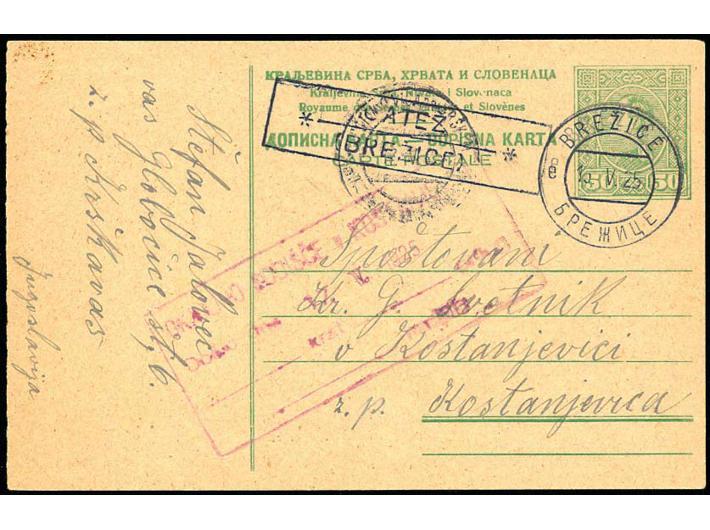 КРАЉЕВИНА СРБА, ХРВАТА И СЛОВЕНАЦА
Kraljevina Srba, Hrvata i Slovenaca
Royaume des Serbes, Croates et Slovènes
ДОПИСНА КАРТА - DOPISNA KARTA
CARTE POSTALE
* ČATEŽ *
(BREŽICE)
BREŽICE
V. 25
БРЕЖИЦЕ
50 50
Spoštovani
Kr. G. Svetnik
v Kostanjevici
z. p. Kostanjevica
Štefan Jalovec
vas Globočice št. 6.
z. p. Koškavas
Jugoslavija